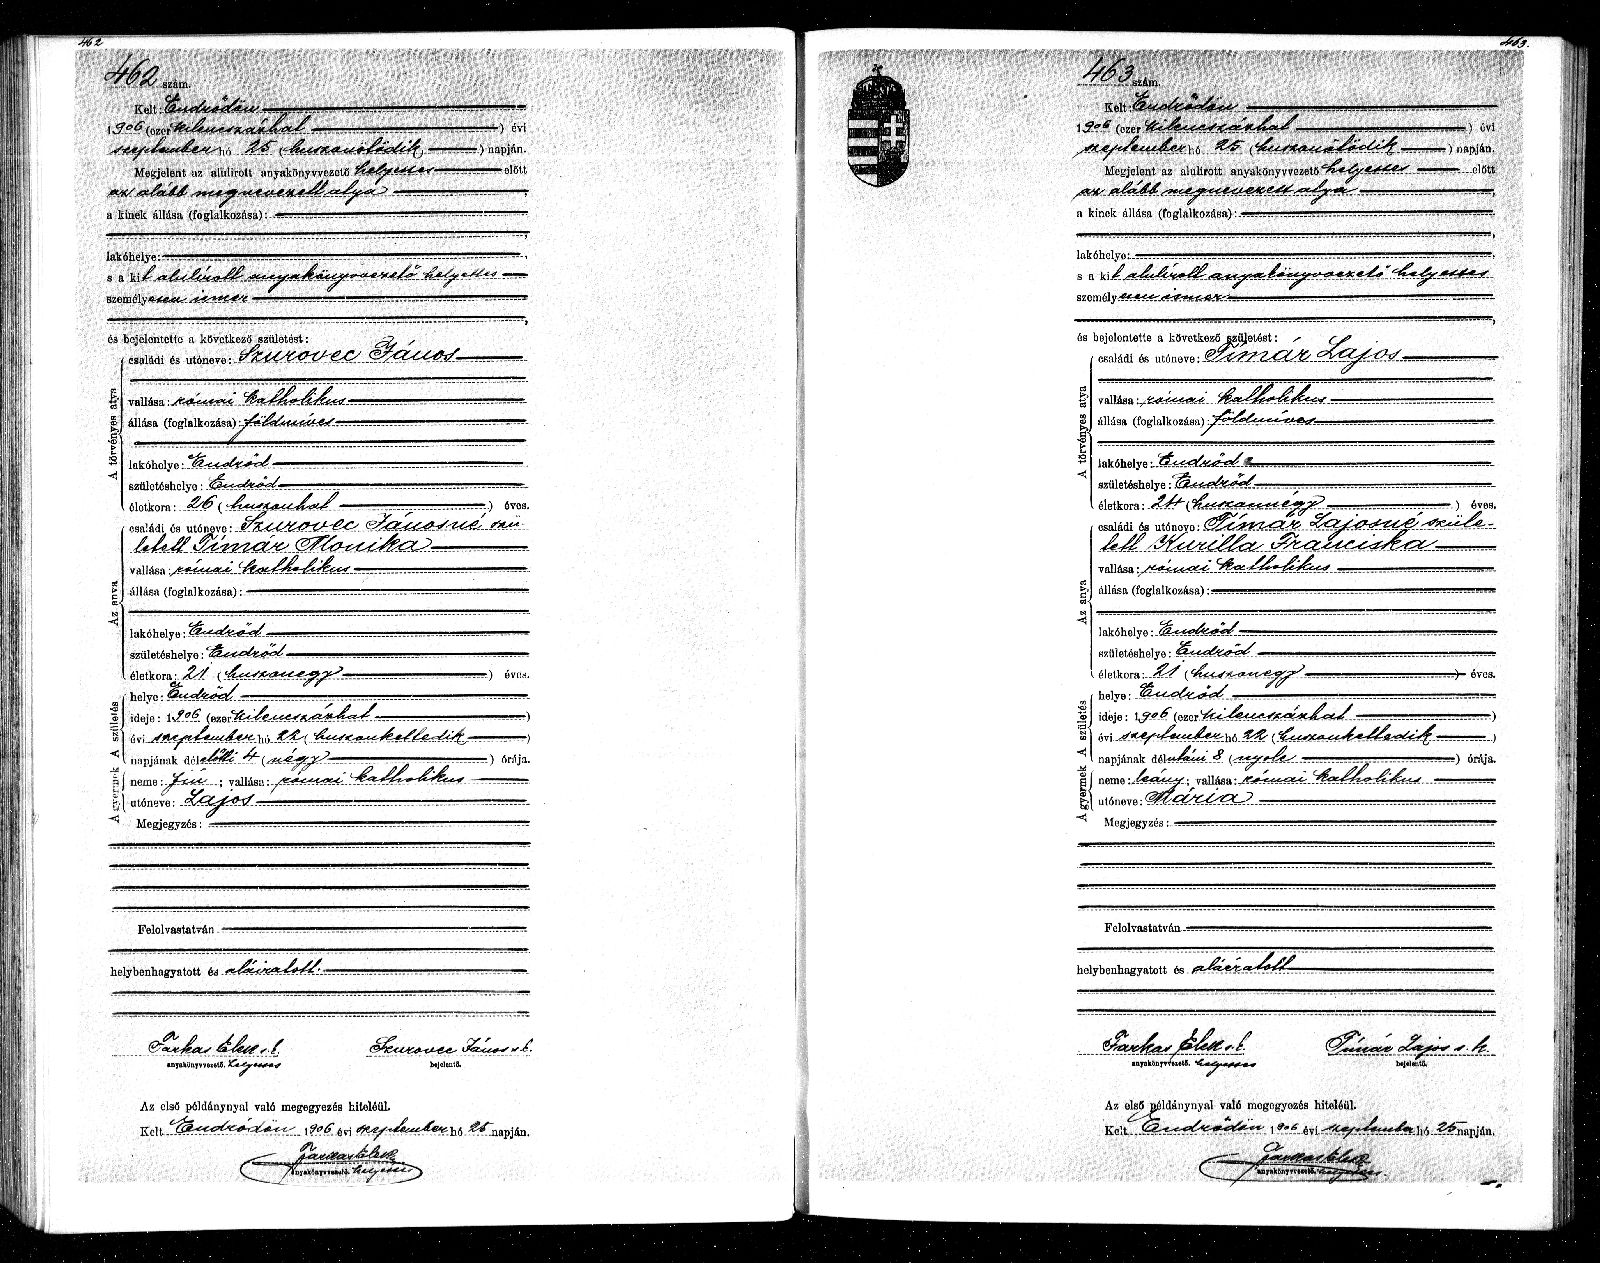 462
462 szám.
Kelt: Endrődön
1906 (ezer kilencszázhat) évi
szeptember hó 25 (huszonötödik) napján.
Megjelent az alulirott anyakönyvvezető helyettes előtt
az alább megnevezett atya,
a kinek állása (foglalkozása):
lakóhelye:
s a kit alulírott anyakönyvvezető helyettes
személyesen ismer
és bejelentette a következő születést:
A törvényes atya
családi és utóneve: Szurovec János
vallása: római katholikus
állása (foglalkozása): földmíves
lakóhelye: Endrőd
születéshelye: Endrőd
életkora: 26 (huszonhat) éves.
Az anya
családi és utóneve: Szurovec Jánosné szü-
letett Tímár Monika
vallása: római katholikus
állása (foglalkozása):
lakóhelye: Endrőd
születéshelye: Endrőd
életkora: 21 (huszonegy) éves.
A gyermek A születés
helye: Endrőd
ideje: 1906 (ezer kilencszázhat)
évi szeptember hó 22 (huszonkettedik)
napjának délelőtti 4 (négy) órája.
neme: fiú; vallása: római katholikus
utóneve: Lajos
Megjegyzés:
Felolvastatván
helybenhagyatott és aláiratott.
Farkas Elek s. k. Szurovec János s. k.
anyakönyvvezető. helyettes bejelentő.
Az első példánynyal való megegyezés hiteléül.
Kelt Endrődön 1906 évi szeptember hó 25 napján.
Farkas Elek
anyakönyvvezető. helyettes
463.
463 szám.
Kelt: Endrődön
1906 (ezer kilencszázhat) évi
szeptember hó 25 (huszonötödik) napján.
Megjelent az alulirott anyakönyvvezető helyettes előtt
az alább megnevezett atya,
a kinek állása (foglalkozása):
lakóhelye:
s a kit alulírott anyakönyvvezető helyettes
személyesen ismer
és bejelentette a következő születést:
A törvényes atya
családi és utóneve: Tímár Lajos
vallása: római katholikus
állása (foglalkozása): földmíves
lakóhelye: Endrőd
születéshelye: Endrőd
életkora: 24 (huszonnégy) éves.
Az anya
családi és utóneve: Tímár Lajosné szüle-
tett Kurilla Franciska
vallása: római katholikus
állása (foglalkozása):
lakóhelye: Endrőd
születéshelye: Endrőd
életkora: 21 (huszonegy) éves.
A gyermek A születés
helye: Endrőd
ideje: 1906 (ezer kilencszázhat)
évi szeptember hó 22 (huszonkettedik)
napjának délutáni 8 (nyolc) órája.
neme: leány; vallása: római katholikus
utóneve: Mária
Megjegyzés:
Felolvastatván
helybenhagyatott és aláíratott
Farkas Elek s. k. Tímár Lajos s. k.
anyakönyvvezető. helyettes bejelentő.
Az első példánynyal való megegyezés hiteléül.
Kelt Endrődön 1906 évi szeptember hó 25 napján.
Farkas Elek
anyakönyvvezető. helyettes.